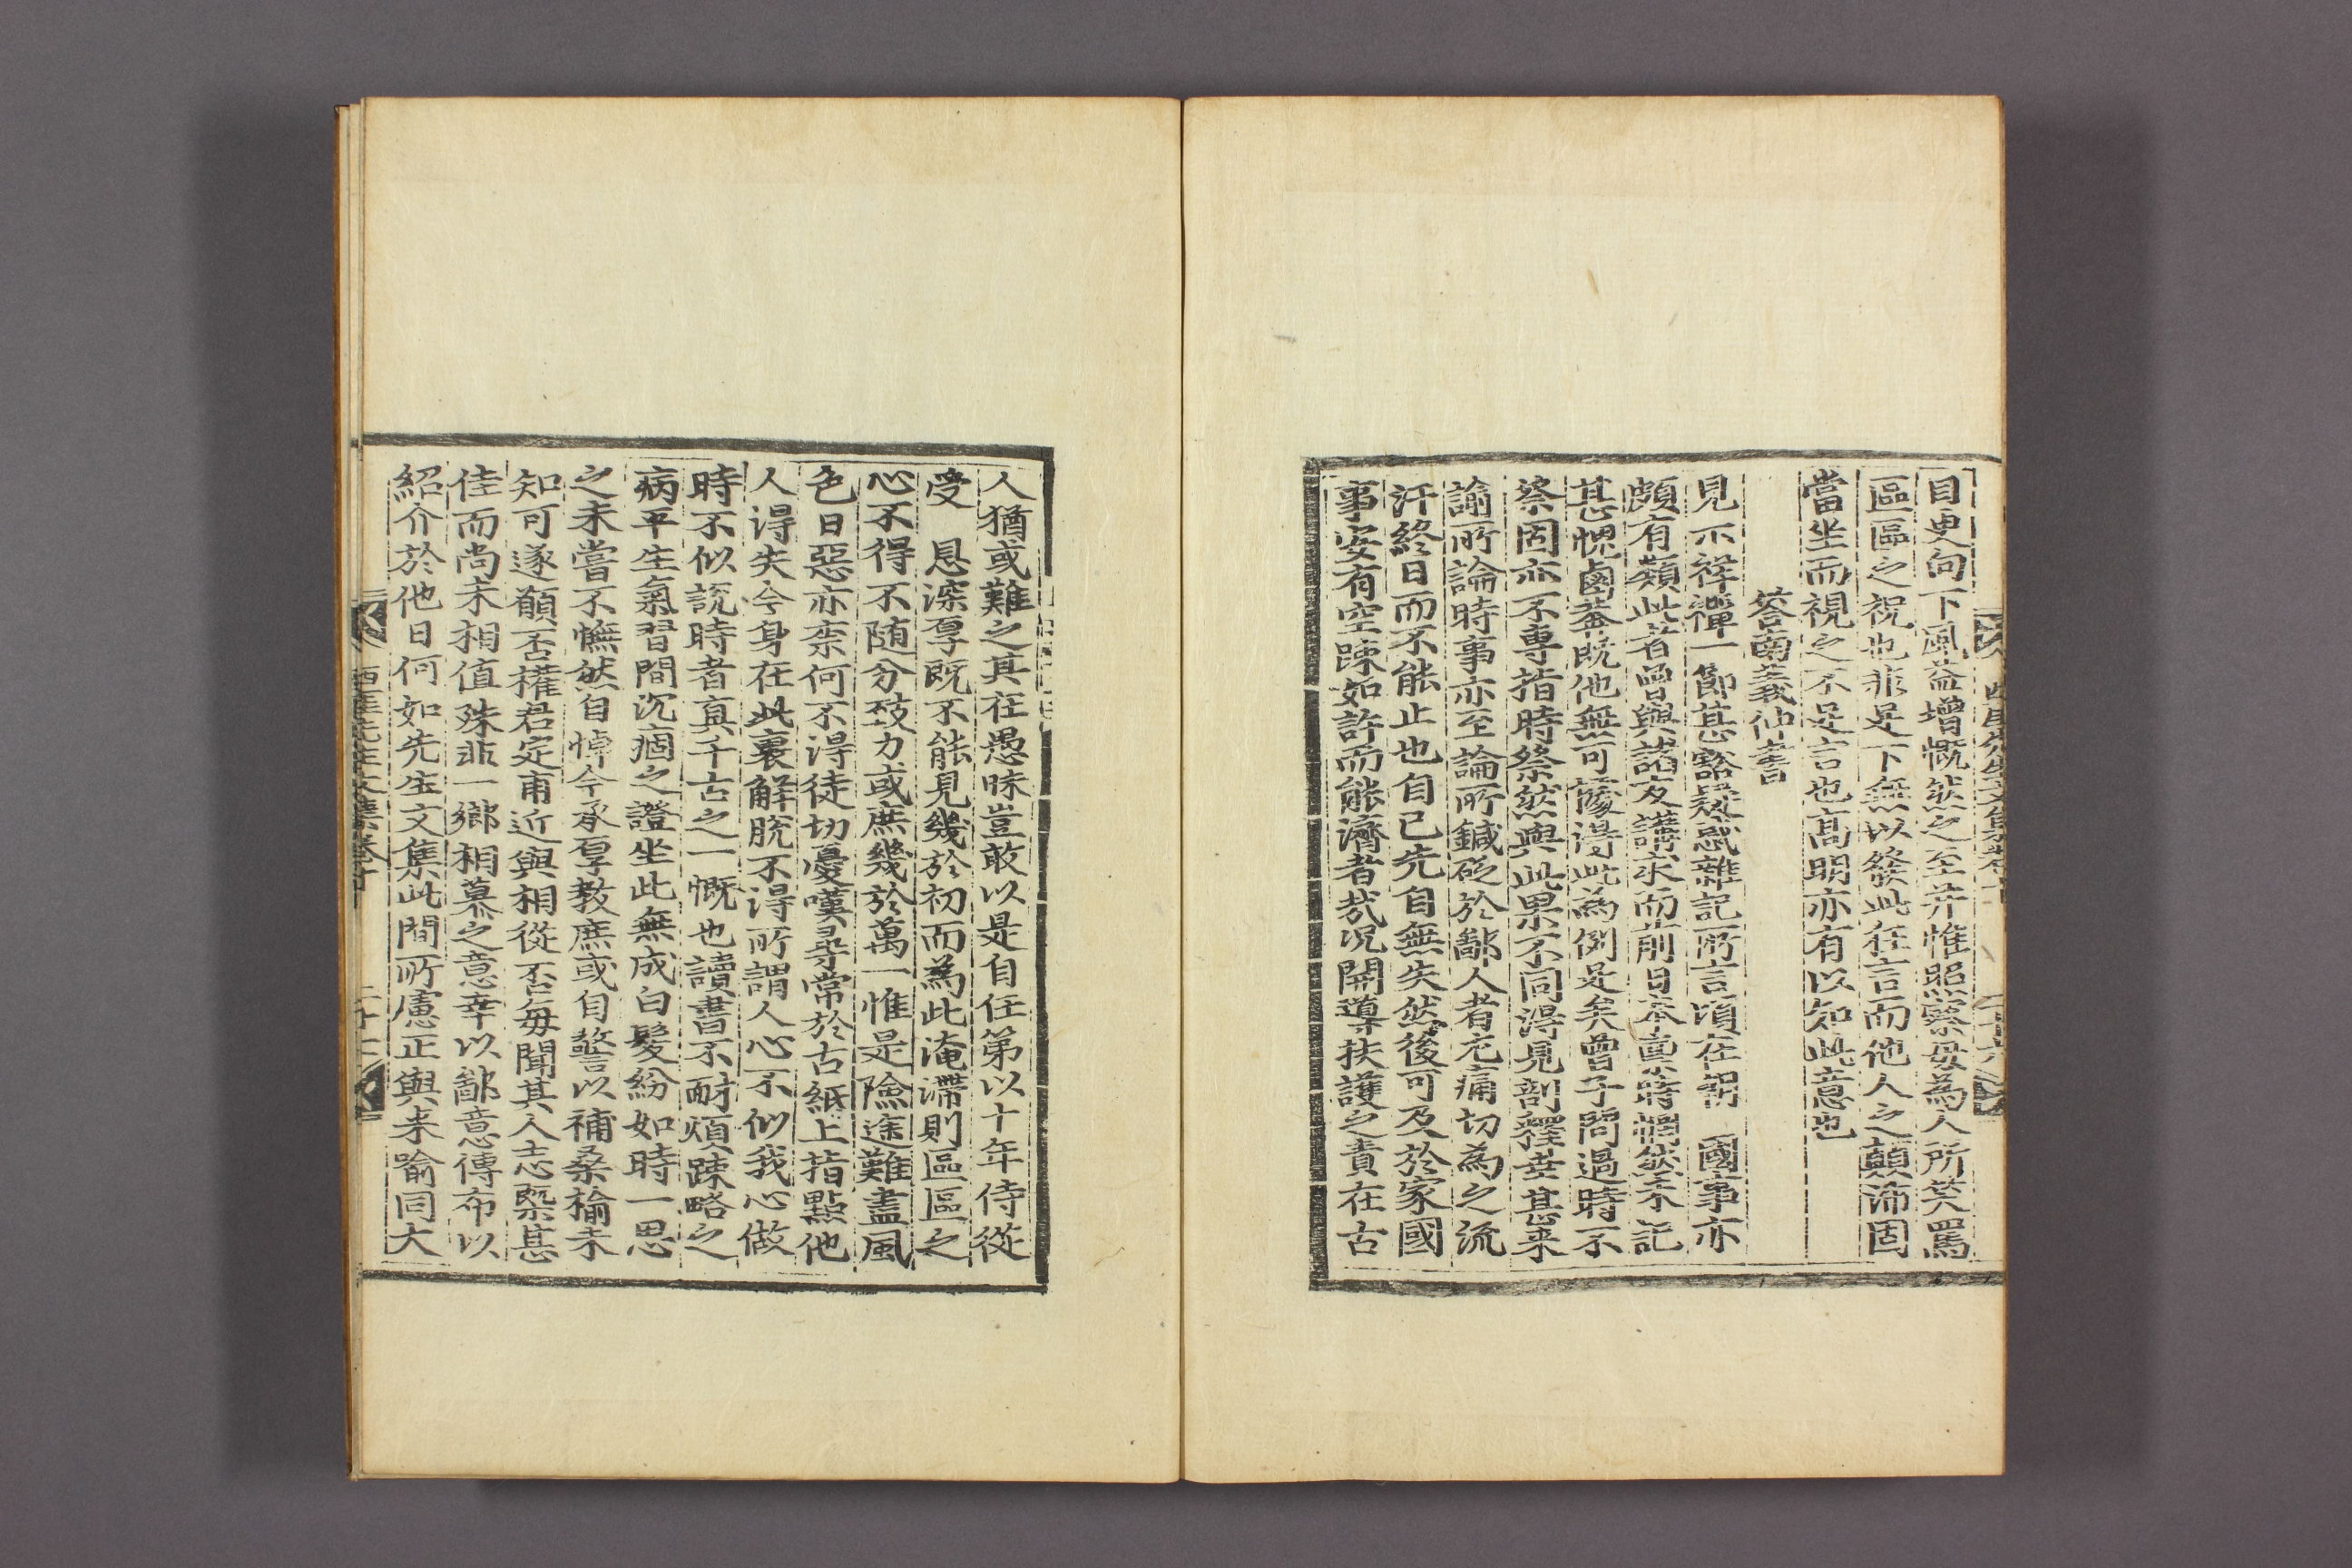 目更向下風益增慨然之至并惟照察毋為人所笑罵
區區之祝也非足下無以發此狂言而他人之顛沛固
當坐而視之不足言也高明亦有以知此意也
答南義仲書
見示祥禫一節甚豁疑惑雜記所言頃在朝 國事亦
頗有類此者曾與諸友講求而前日奉稟時惘然未記
甚愧鹵莽旣他無可據得此為例是矣曾子問過時不
祭固亦不專指時祭然與此果不同得見剖釋幸甚來
諭所論時事亦至論所鍼砭於鄙人者尤痛切為之流
汗終日而不能止也自己先自無失然後可及於家國
事安有空踈如許而能濟者哉况開導扶護之責在古
人猶或難之其在愚昧豈敢以是自任第以十年侍從
受 恩深厚旣不能見幾於初而為此淹滯則區區之
心不得不随分效力或庶幾於萬一惟是險途難盡風
色日惡亦柰何不得徒切憂嘆尋常於古紙上指點他
人得失今身在此裏解脫不得所謂人心不似我心做
時不似說時者眞千古之一慨也讀書不耐煩踈略之
病平生氣習間沉痼之證坐此無成白髮紛如時一思
之未嘗不憮然自悼今承厚敎庶或自警以補桑楡未
知可遂願否權君定甫近與相從否每聞其人志槩甚
佳而尚未相值殊非一鄉相慕之意幸以鄙意傳布以
紹介於他日何如先生文集此間所慮正與来喻同大
西厓先生文集卷十